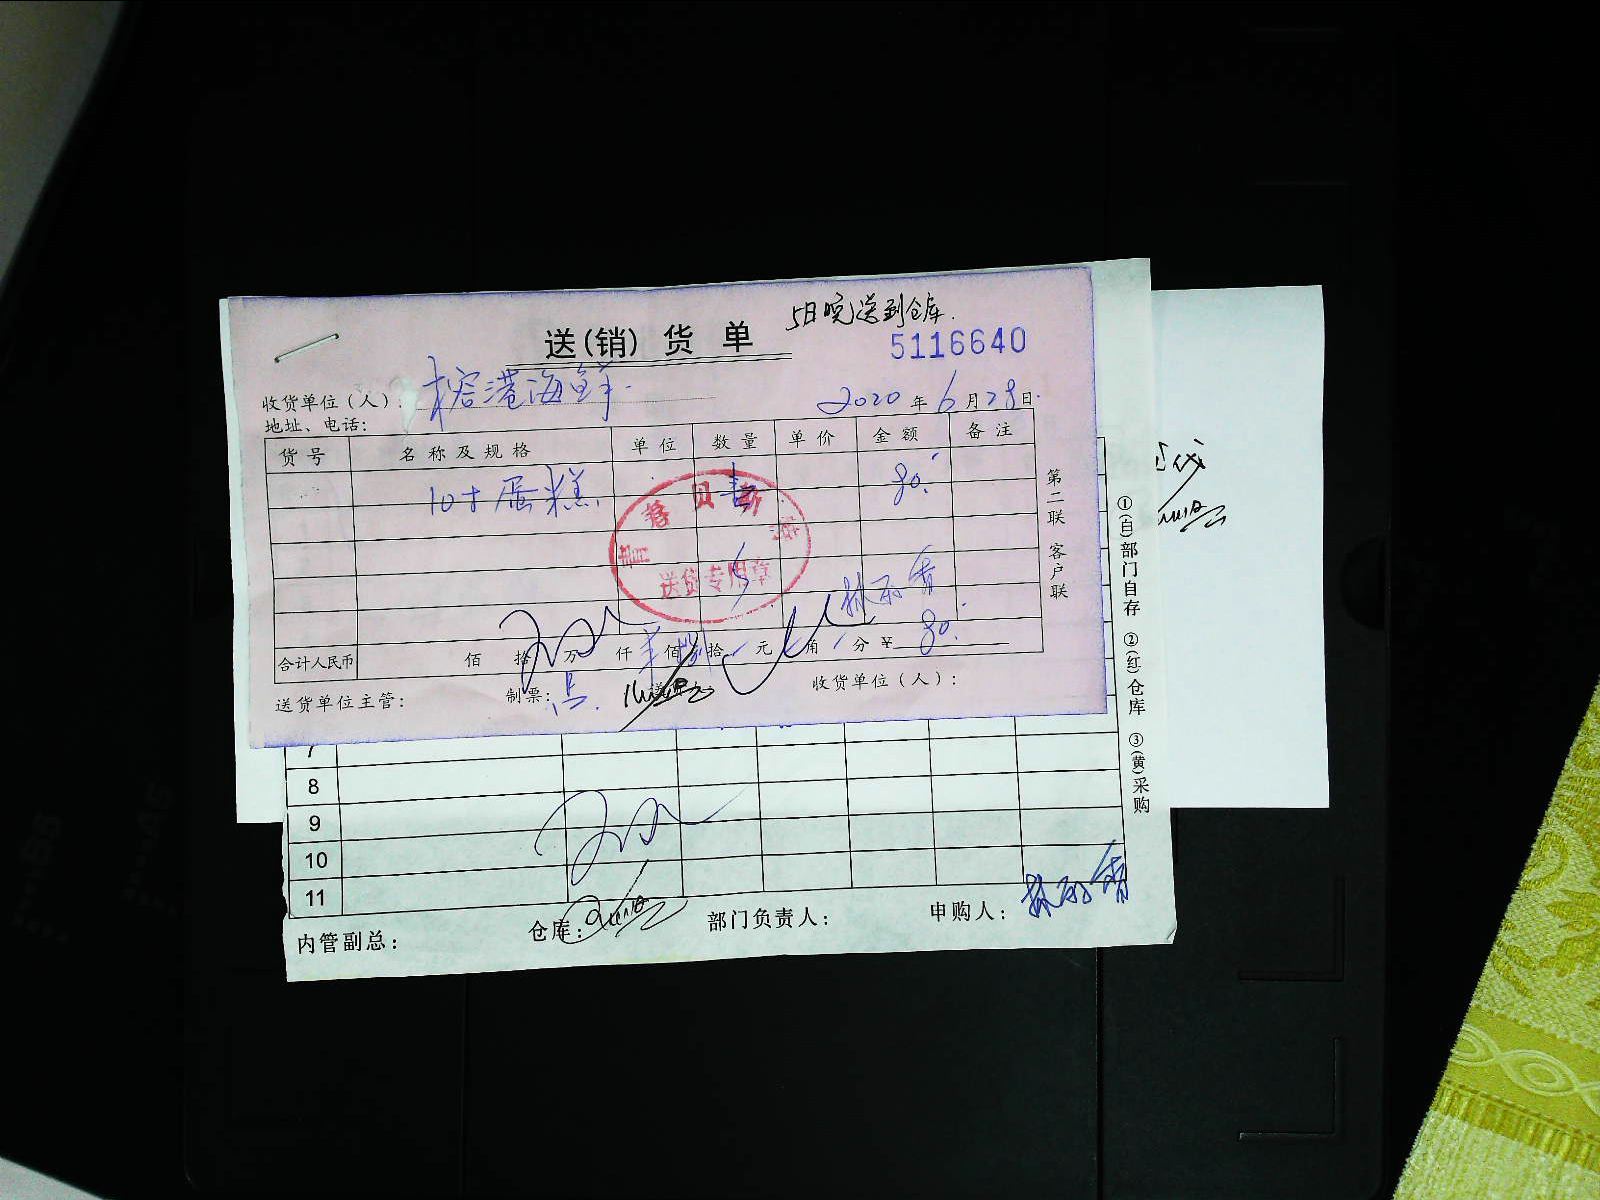 5日晚送到仓库.
送(销) 货 单
5116640
收货单位(人): 榕港海鲜
2020 年 6 月 28 日
地址、电话:
货号 名称及规格 单位 数量 单价 金额 备注
10寸蛋糕 80.
送货专用章
第二联 客户联
合计人民币 佰 拾 万 仟 佰 捌 拾 元 角 分 ¥ 80.
送货单位主管: 制票: 收货单位(人):
①(白)部门自存 ②(红)仓库 ③(黄)采购
7
8
9
10
11
内管副总: 仓库: 部门负责人: 申购人: